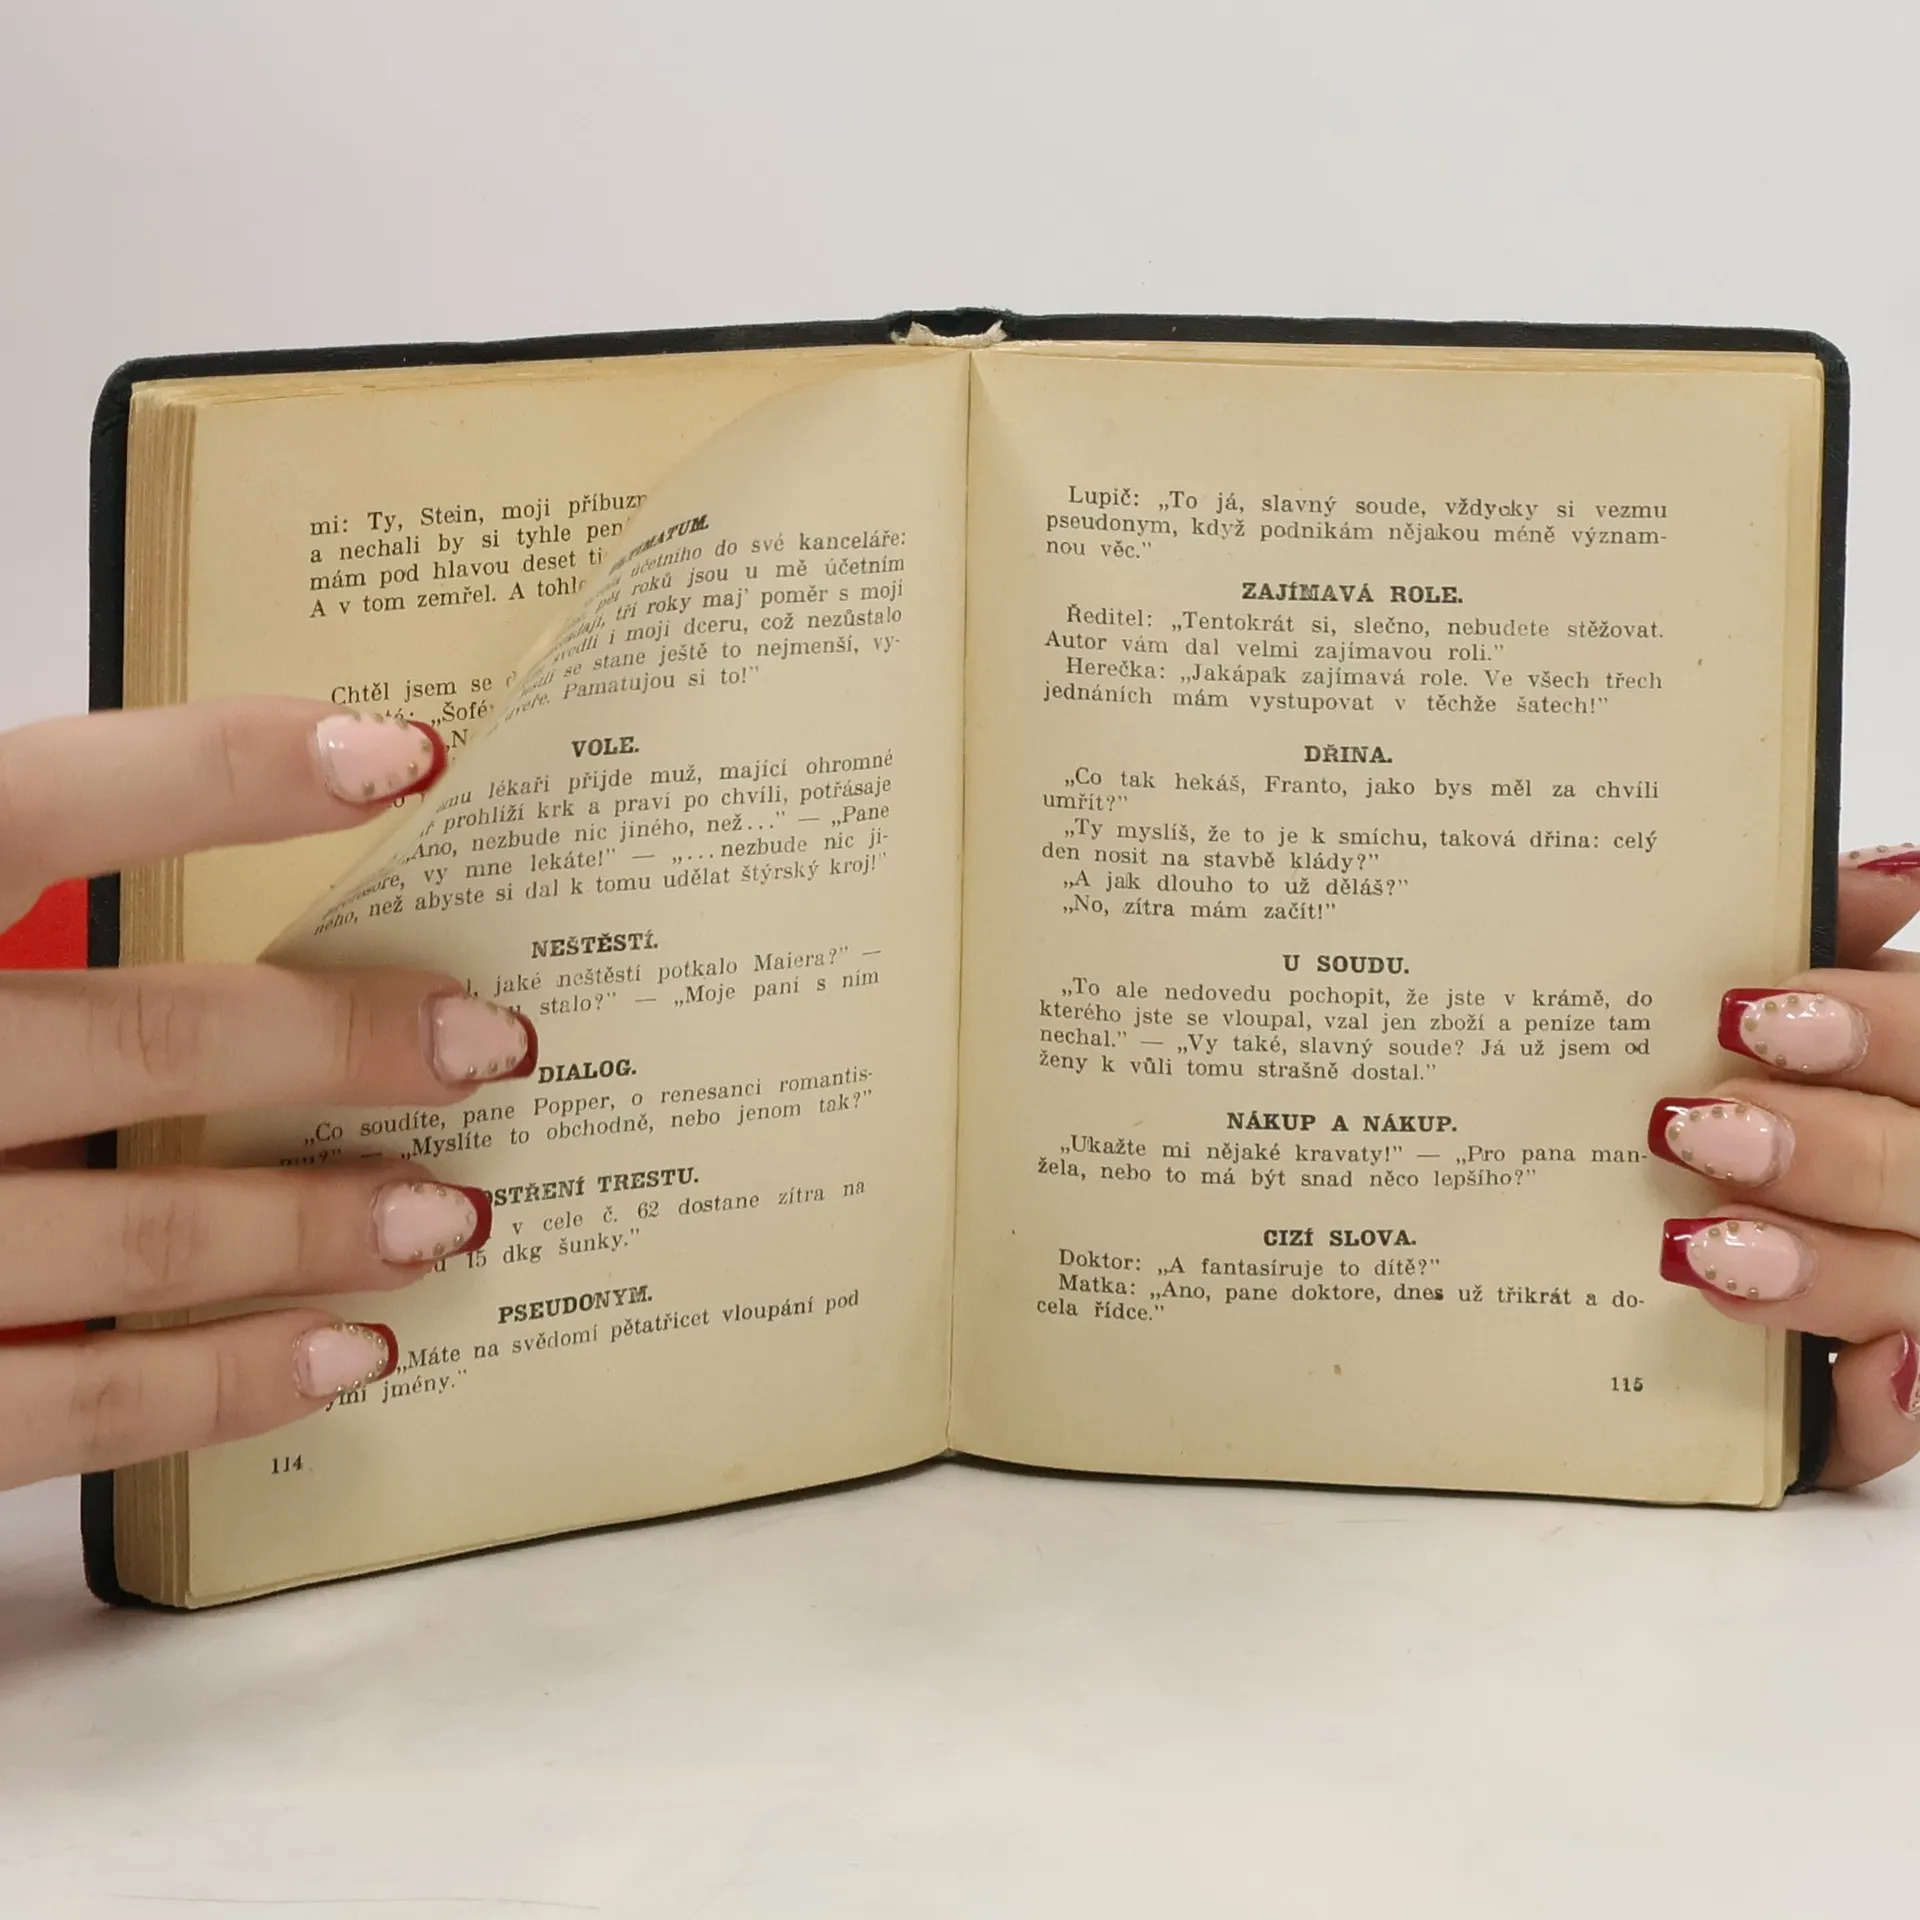 mi: Ty, Stein, moji
a nechali by si tyhle
mám pod hlavou deset
A v tom zemřel. A
Chtěl jsem se
účetního do své kanceláře:
pět roků jsou u mě účetním
tři roky maj' poměr s mojí
svedli i moji dceru, což nezůstalo
se stane ještě to nejmenší, vy-
Pamatujou si to!"
VOLE.
lékaři přijde muž, mající ohromné
prohlíží krk a praví po chvíli, potřásaje
„Ano, nezbude nic jiného, než..." — „Pane
vy mne lekáte!" — „...nezbude nic ji-
ného, než abyste si dal k tomu udělat štýrský kroj!"
NEŠTĚSTÍ.
jaké neštěstí potkalo Maiera?" —
stalo?" — „Moje paní s ním
DIALOG.
„Co soudíte, pane Popper, o renesanci romantis-
— „Myslíte to obchodně, nebo jenom tak?"
TRESTU.
v cele č. 62 dostane zítra na
15 dkg šunky."
PSEUDONYM.
„Máte na svědomí pětatřicet vloupání pod
jmény."
114
Lupič: „To já, slavný soude, vždycky si vezmu
pseudonym, když podnikám nějakou méně význam-
nou věc."
ZAJÍMAVÁ ROLE.
Ředitel: „Tentokrát si, slečno, nebudete stěžovat.
Autor vám dal velmi zajímavou roli."
Herečka: „Jakápak zajímavá role. Ve všech třech
jednáních mám vystupovat v těchže šatech!"
DŘINA.
„Co tak hekáš, Franto, jako bys měl za chvíli
umřít?"
„Ty myslíš, že to je k smíchu, taková dřina: celý
den nosit na stavbě klády?"
„A jak dlouho to už děláš?"
„No, zítra mám začít!"
U SOUDU.
„To ale nedovedu pochopit, že jste v krámě, do
kterého jste se vloupal, vzal jen zboží a peníze tam
nechal." — „Vy také, slavný soude? Já už jsem od
ženy k vůli tomu strašně dostal."
NÁKUP A NÁKUP.
„Ukažte mi nějaké kravaty!" — „Pro pana man-
žela, nebo to má být snad něco lepšího?"
CIZÍ SLOVA.
Doktor: „A fantasíruje to dítě?"
Matka: „Ano, pane doktore, dnes už třikrát a do-
cela řídce."
115